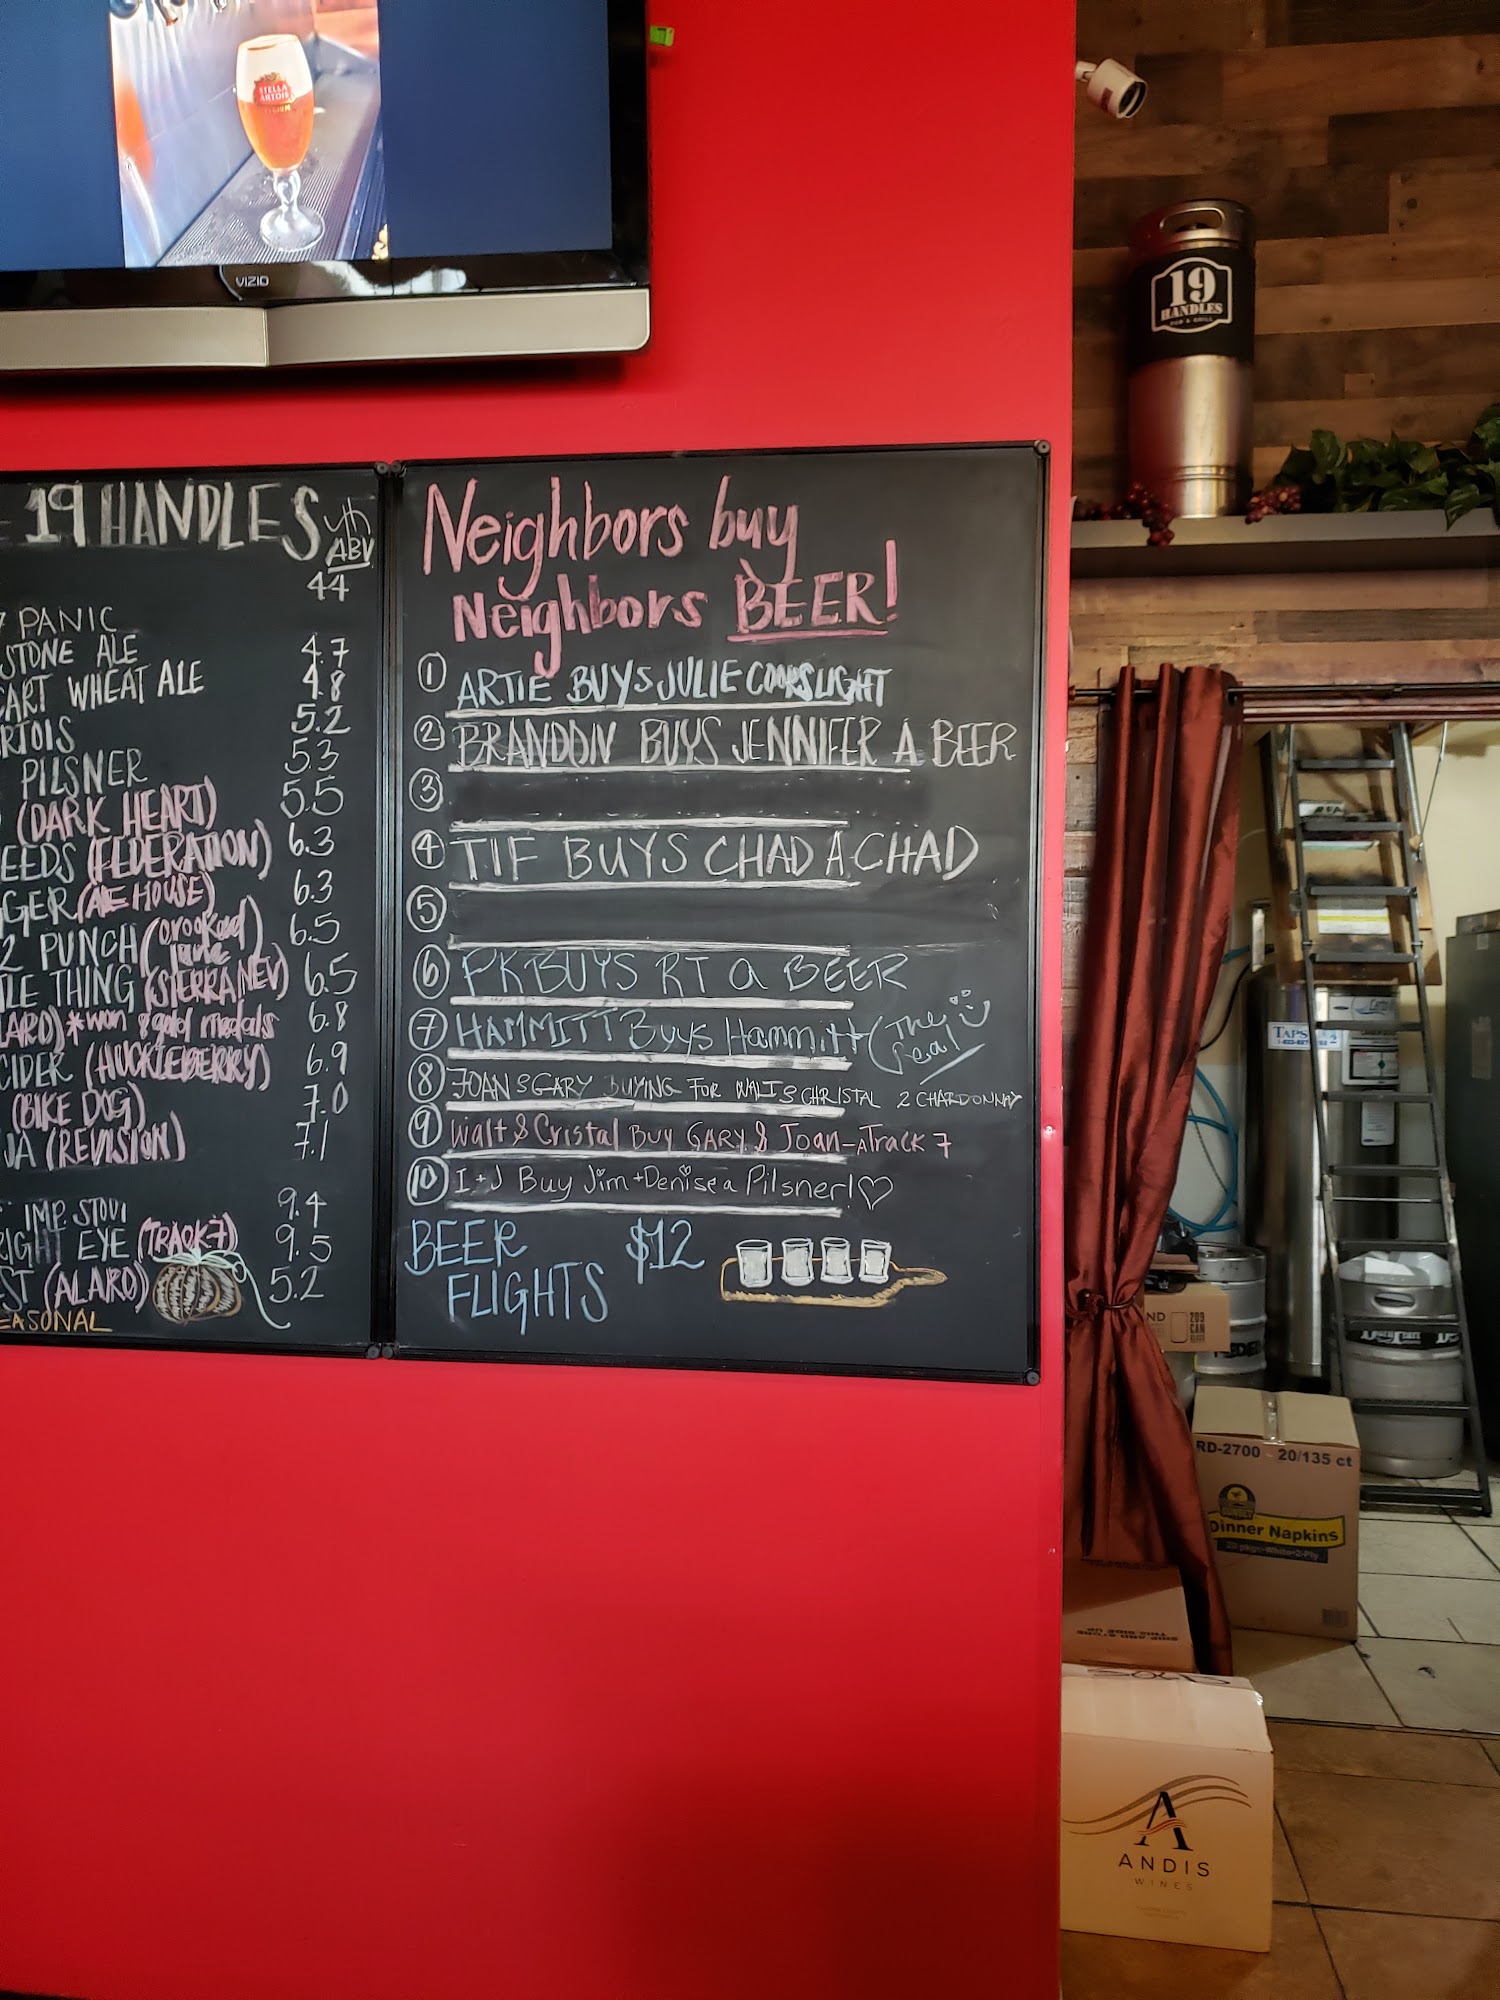 STELLA
ARTOIS
VIZIO
19
HANDLES
PUB & GRILL
19 HANDLES
ABV
44
PANIC
STONE ALE 4.7
CART WHEAT ALE 4.8
RTOIS 5.2
PILSNER 5.3
(DARK HEART) 5.5
EEDS (FEDERATION) 6.3
GER (ALE HOUSE) 6.3
2 PUNCH (crooked lane 6.5
LE THING (SIERRA NEV) 6.5
LARO) *won gold medals 6.8
CIDER (HUCKLEBERRY) 6.9
(BIKE DOG) 7.0
JA (REVISION) 7.1
IMP. STOUT 9.4
RIGHT EYE (TRACK 7) 9.5
ST (ALARO) 5.2
EASONAL
Neighbors buy
Neighbors BEER!
1 ARTIE BUYS JULIE COORS LIGHT
2 BRANDON BUYS JENNIFER A BEER
3
4 TIF BUYS CHAD A CHAD
5
6 PK BUYS RT a BEER
7 HAMMITT Buys Hammitt (The
Real
8 JOAN & GARY BUYING FOR WALT & CHRISTAL 2 CHARDONNAY
9 Walt & Cristal BUY GARY & Joan - A TRACK 7
10 I + J Buy Jim + Denise a Pilsner!
BEER $12
FLIGHTS
TAPS
RD-2700 20/135 ct
Dinner Napkins
SHIP AND STORE
THIS SIDE UP
A
ANDIS
WINES